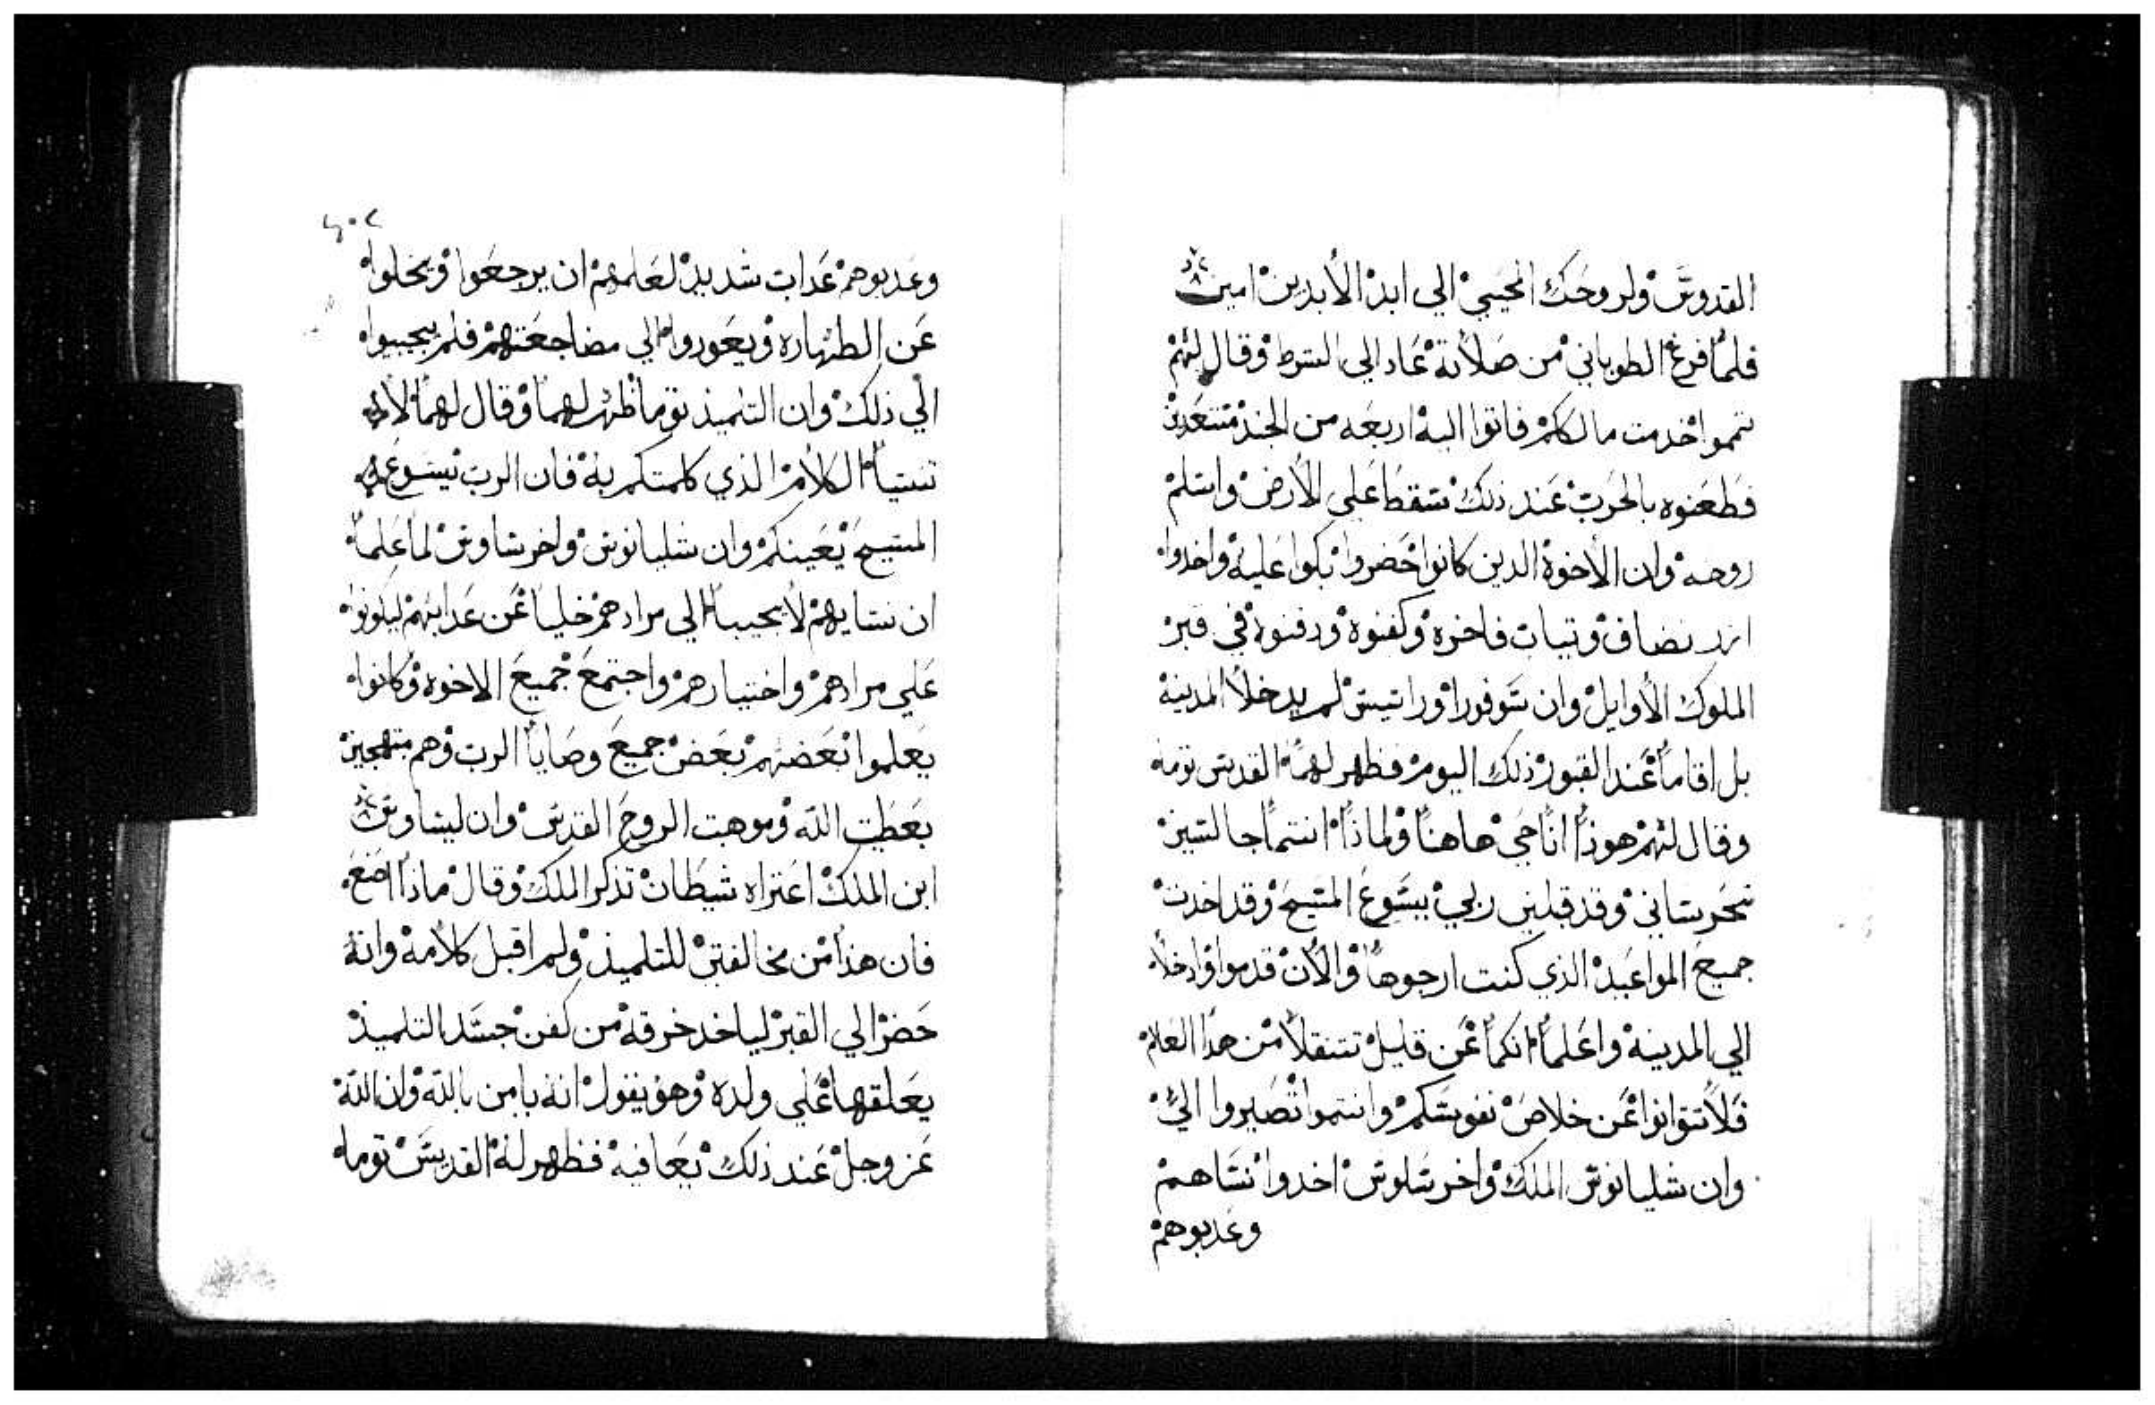 القدوس ولروحك المحيي الي ابد الأبدين امين
فلما فرغ الطوباني من صلاته عاد الي الشرط وقال لهم
تمموا خدمت مالككم فاتوا اليه اربعه من الجند مستعدين
فطعنوه بالحرب عند ذلك سقط علي الأرض واسلم
روحه وان الأخوة الدين كانوا حضروا بكوا عليه واخدوا
ازر نضاف وتياب فاخره وكفنوه ودفنوه في قبر
الملوك الأوايل وان سوفورا وراتيس لم يدخلا المدينه
بل اقاما عند القبور ذلك اليوم فظهر لهما القديس توما
وقال لهم هوذا انا حي هاهنا ولماذا انتما جالسين
تحرساني وقد قبلني ربي يسوع المسيح وقد اخدت
جميع المواعيد الذي كنت ارجوها والأن قدموا وادخلا
الي المدينه واعلما انكما عن قليل تنتقلا من هدا العالم
فلا تتوانوا عن خلاص نفوسكم وانتموا تصيروا الي
وان شليانوش الملك واخرساوش اخدوا نساهم
وعدبوهم
وعدبوهم عداب شديد لعلهم ان يرجعوا ويخلوا
عن الطهاره ويعودوا الي مضاجعتهم فلم يجيبوا
الي ذلك وان التلميذ توما ظهر لهما وقال لهما لا
تنسيا الكلام الذي كلمتكم به فان الرب يسوع
المسيح يعينكم وان شليانوش واخرساوش لما علما
ان نسايهم لا يجيبا الي مرادهم خليا عن عدابهم ليكونوا
علي مرادهم واختيارهم واجتمع جميع الاخوه وكانوا
يعلموا بعضهم بعض جميع وصايا الرب وهم مبتهجين
بعطيت الله وموهبت الروح القدس وان ليشاوش
ابن الملك اعتراه شيطان تذكر الملك وقال ماذا اصنع
فان هذا من مخالفتي للتلميذ ولم اقبل كلامه وانه
حضر الي القبر لياخد خرقه من كفن جسد التلميذ
يعلقها علي ولده وهو يقول انه يامن بالله وان الله
عز وجل عند ذلك يعافيه فظهر له القديس توما